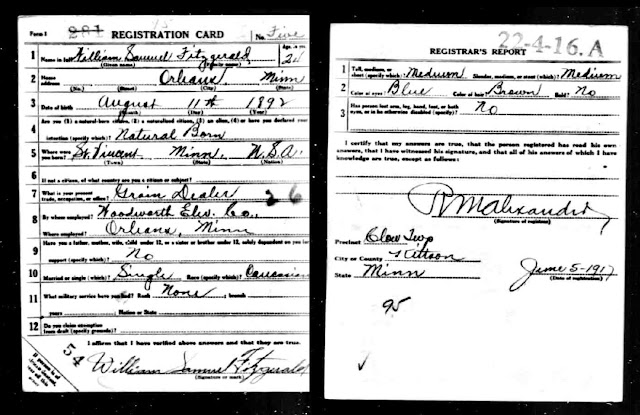 Form 1 281 REGISTRATION CARD No. Five
1 Name in full William Samuel Fitzgerald Age, in yrs. 24
(Given name) (Family name)
2 Home address Orleans, Minn
(No.) (Street) (City) (State)
3 Date of birth August 11th 1892
(Month) (Day) (Year)
4 Are you (1) a natural-born citizen, (2) a naturalized citizen, (3) an alien, (4) or have you declared your
intention (specify which)? Natural Born
5 Where were you born? St. Vincent Minn. U.S.A.
(Town) (State) (Nation)
6 If not a citizen, of what country are you a citizen or subject?
7 What is your present trade, occupation, or office? Grain Dealer 26
8 By whom employed? Woodworth Elev. Co.,
Where employed? Orleans, Minn
9 Have you a father, mother, wife, child under 12, or a sister or brother under 12, solely dependent on you for
support (specify which)? No
10 Married or single (which)? Single Race (specify which)? Caucasian
11 What military service have you had? Rank None ; branch
years ; Nation or State
12 Do you claim exemption from draft (specify grounds)?
I affirm that I have verified above answers and that they are true.
54
William Samuel Fitzgerald
(Signature or mark)
REGISTRAR'S REPORT 22-4-16. A
1 Tall, medium, or short (specify which)? Medium Slender, medium, or stout (which)? Medium
2 Color of eyes? Blue Color of hair? Brown Bald? No
3 Has person lost arm, leg, hand, foot, or both eyes, or is he otherwise disabled (specify)? No
I certify that my answers are true, that the person registered has read his own
answers, that I have witnessed his signature, and that all of his answers of which I have
knowledge are true, except as follows:
R M Alexander
(Signature of registrar)
Precinct Clow Twp
City or County Kittson
State Minn June 5-1917
(Date of registration)
95